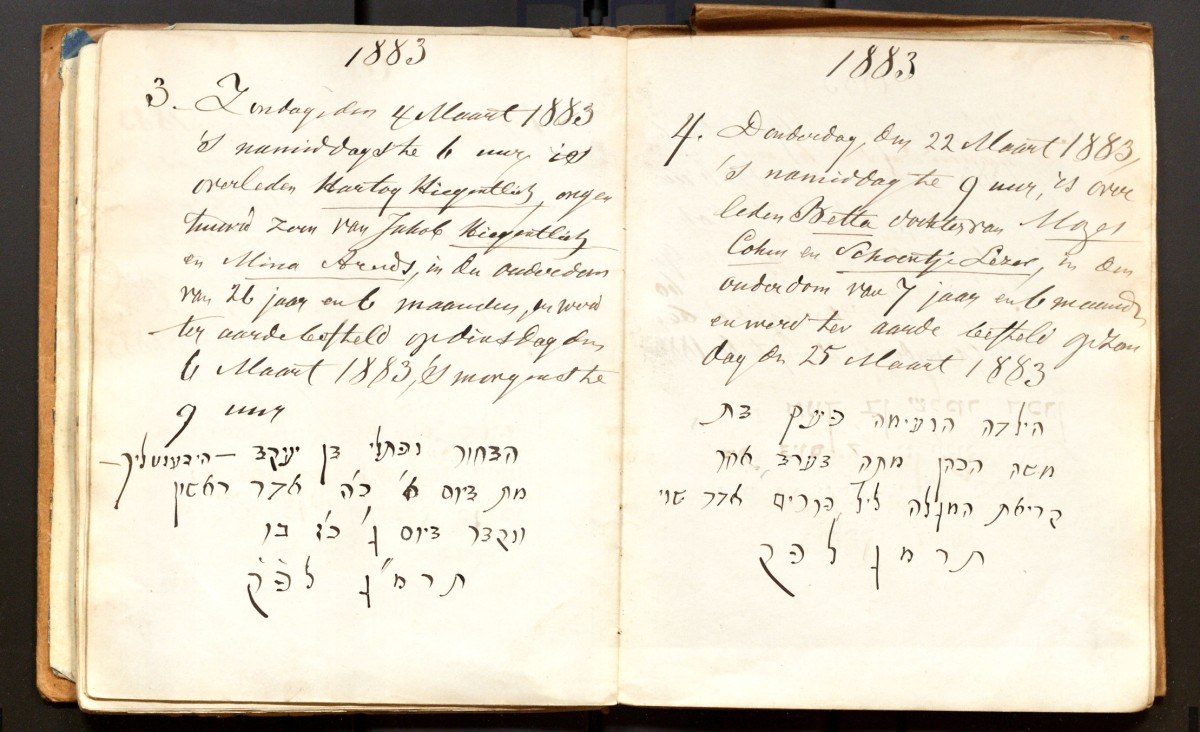 1883
3. Zondag, den 4 Maart 1883
's namiddags te 6 uur, is
overleden Hartog Hiegentlich, onge
huwd zoon van Jakob Hiegentlich
en Mina Arends, in den ouderdom
van 26 jaar en 6 maanden, en werd
ter aarde besteld op dinsdag den
6 Maart 1883, 's morgens te
9 uur
הבחור נפתלי בן יעקב –היגענטליך–
מת ביום א' כ"ה אדר ראשון
ונקבר ביום ג' כ"ז בו
תרמ"ג לפ"ק
1883
4. Donderdag, den 22 Maart 1883,
's namiddag te 9 uur, is over
leden Betta dochter van Mozes
Cohen en Schoontje Lezer, in den
ouderdom van 7 jaar en 6 maanden
en werd ter aarde besteld op Zon
dag den 25 Maart 1883
הילדה הנעימה בת
משה הכהן מתה בערב אחר
קריאת המגלה ליל פורים אדר שני
תרמג לפק